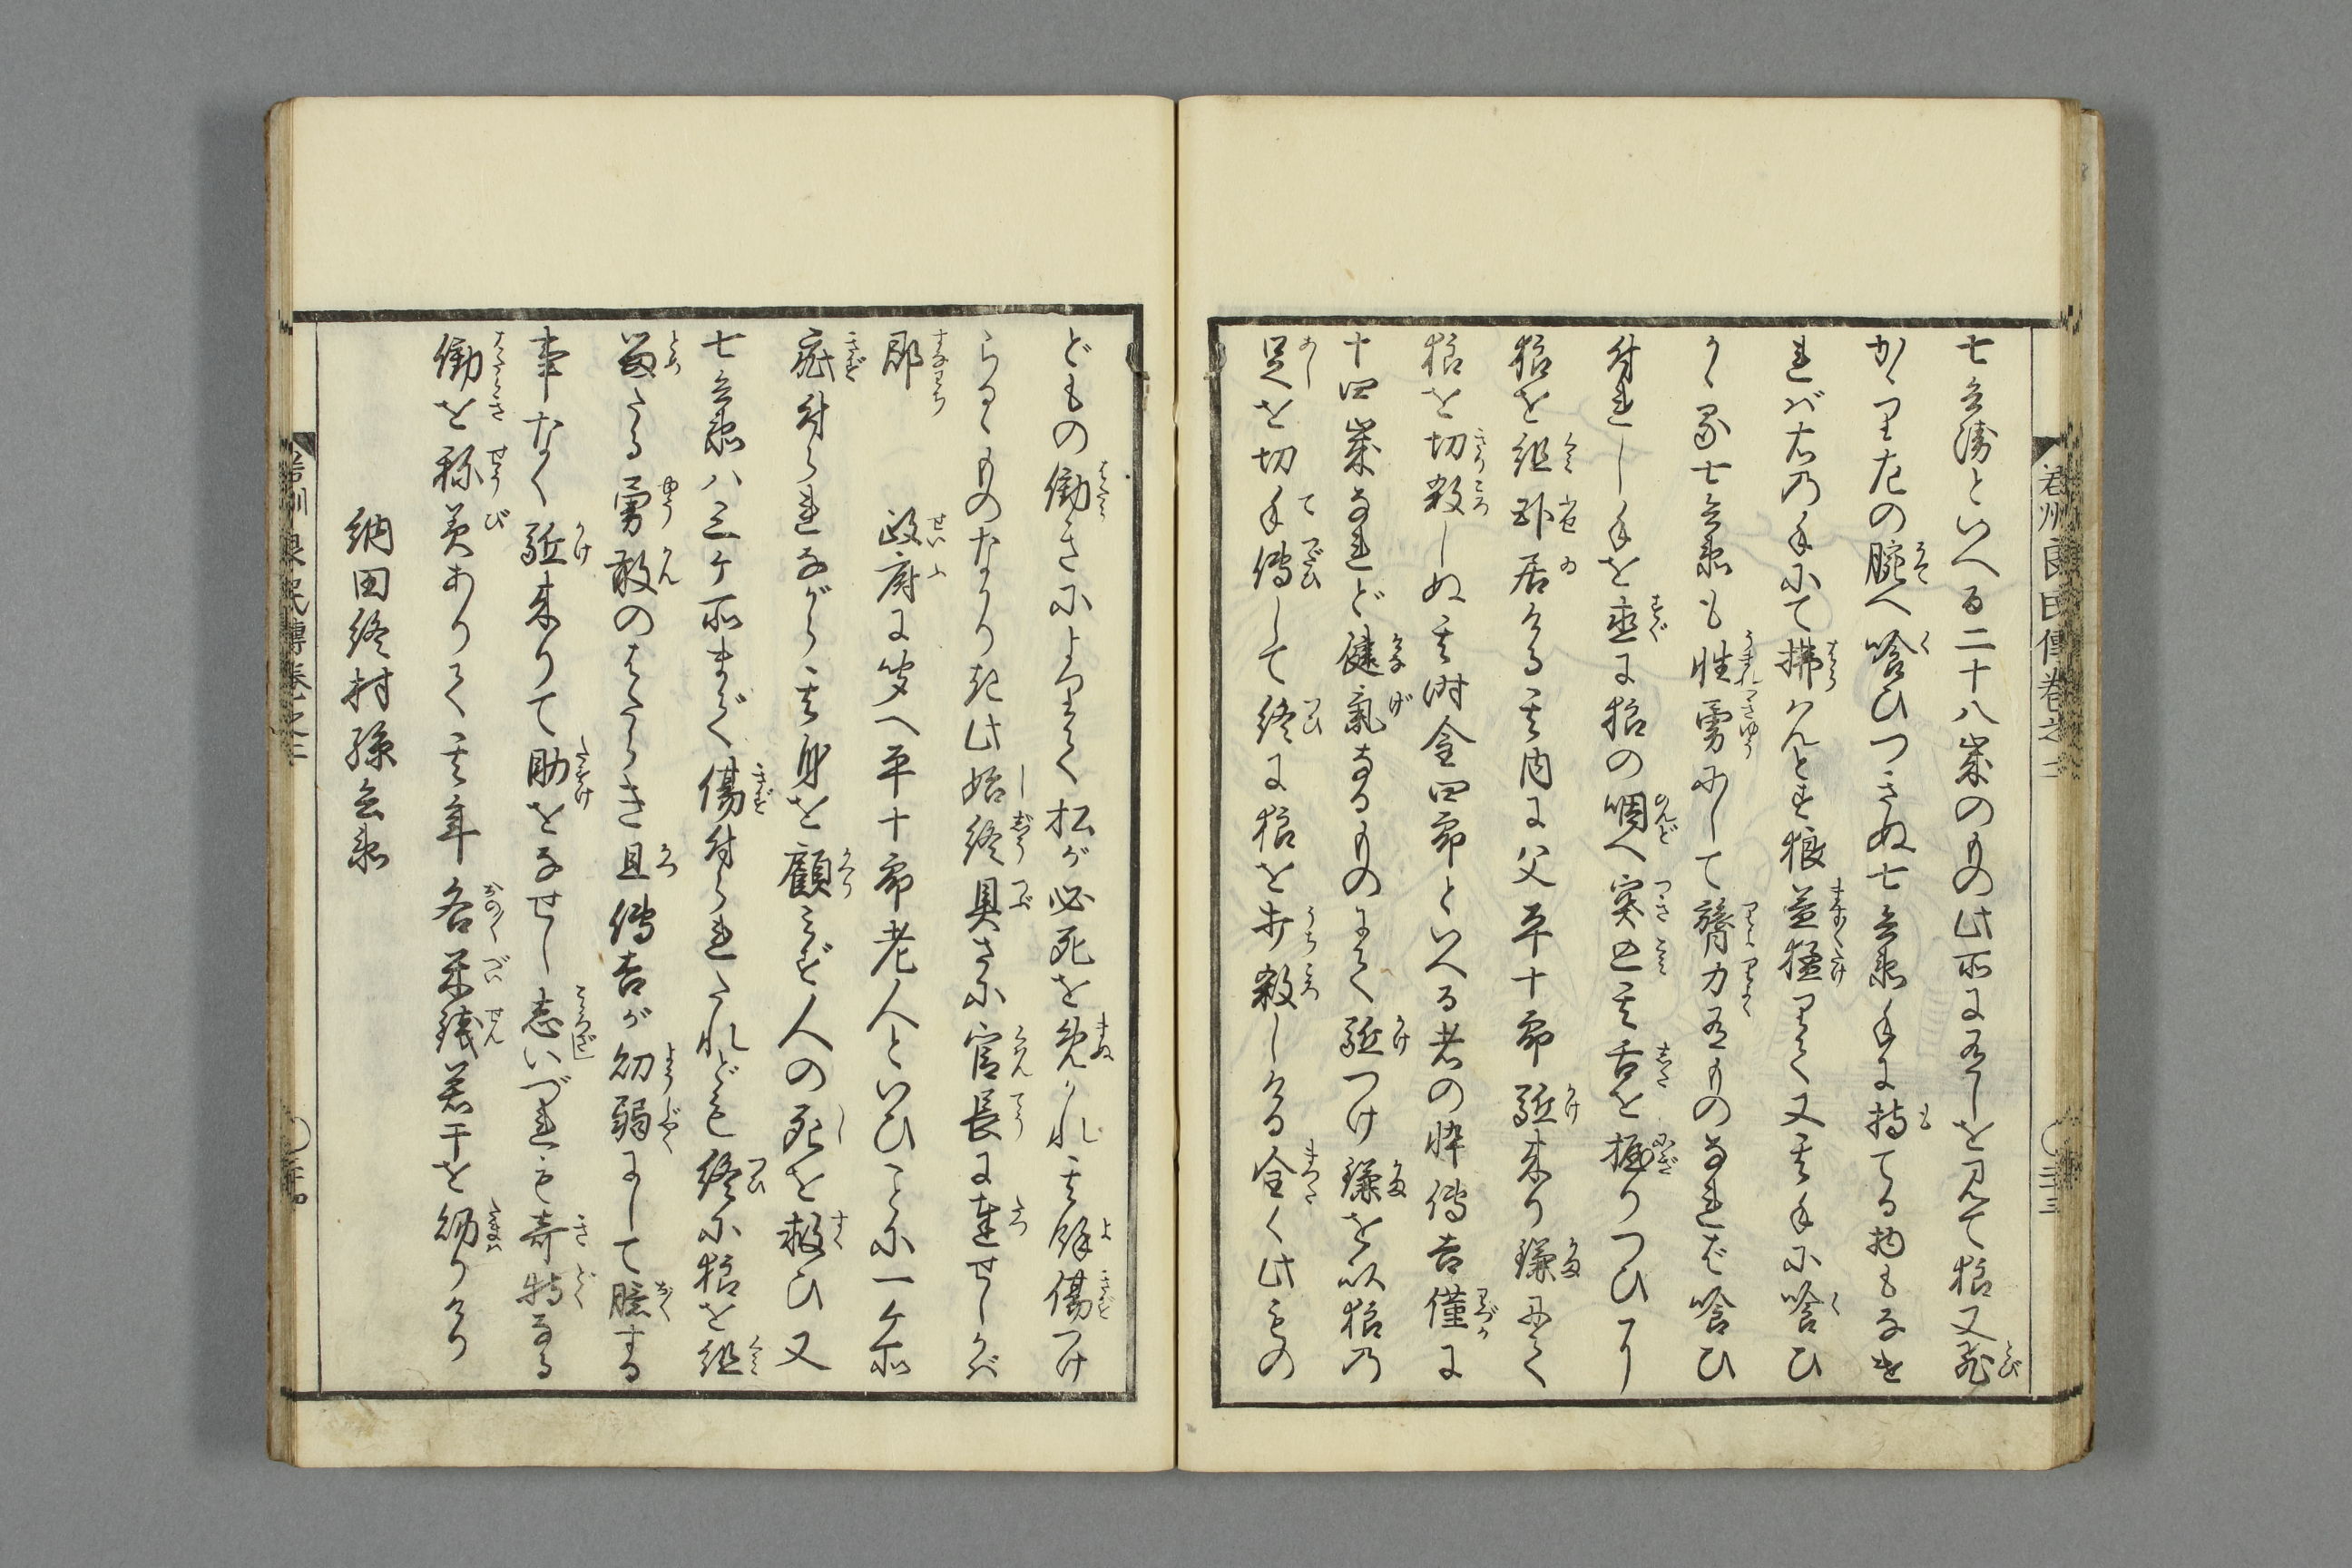 若州良民傳巻之二
三十三
七兵衛といへる二十八歳のもの此所に有しを見て狼又飛
かゝり左の腕へ喰ひつきぬ七兵衛手に持てる物もなけ
れば右の手にて拂はんとす狼益猛りて又其手に喰ひ
かゝる七兵衛も性勇にして膂力有ものなれば喰ひ
付れし手を直に狼の咽へ突込其舌を握りつひに
狼を組臥居ける其内に父平十郎駈来り鎌にて
狼を切殺しぬ其時金四郎といへる者の悴傳吉僅に
十四歳なれど健氣なるものにて駈つけ鎌を以狼の
足を切手傳して終に狼を打殺しける全く此もの
どもの働きによりて松が必死を免かれ其餘傷つけ
らるゝものなかりき此始終具さに官長に達せしかば
即 政府に聞へ平十郎老人といひことに一ケ所
疵付られながら其身を顧みず人の死を救ひ又
七兵衛ハ三ケ所まで傷付られたれども終に狼を組
留たる勇敢のはたらき且傳吉が幼弱にして臆する
事なく駈来りて助をなせし志いづれも奇特なる
働を称美ありて其年各米錢若干を賜りけり
納田終村孫兵衛
若州良民傳巻之二